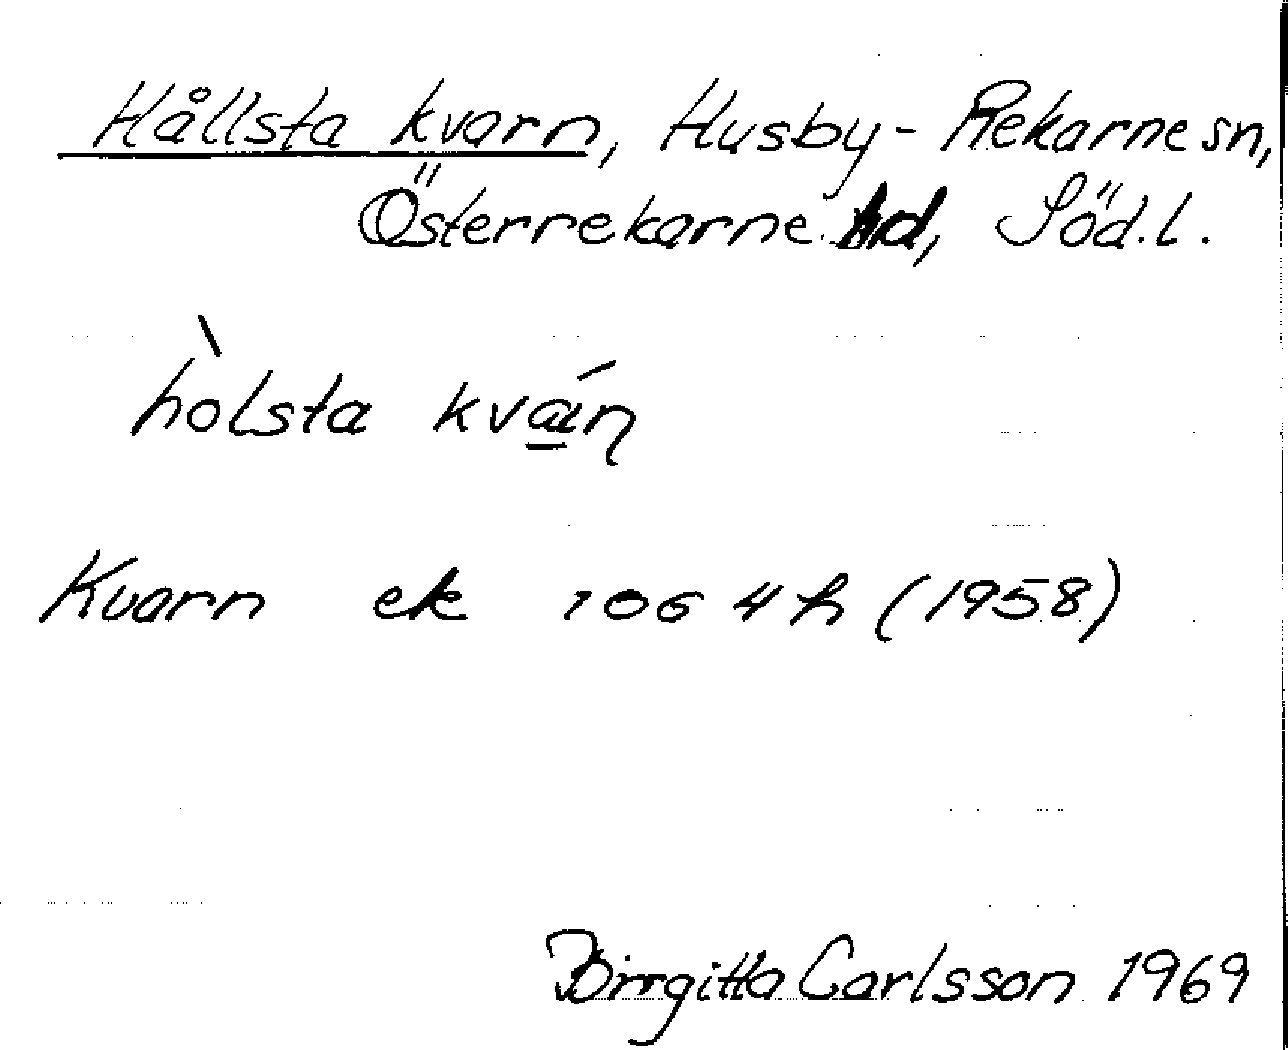 Hållsta kvarn, Husby-Rekarne sn,
Österrekarne hd, Söd.l.
hòlsta kváɳ
Kvarn ek 1064h (1958)
Birrgitta Carlsson 1969